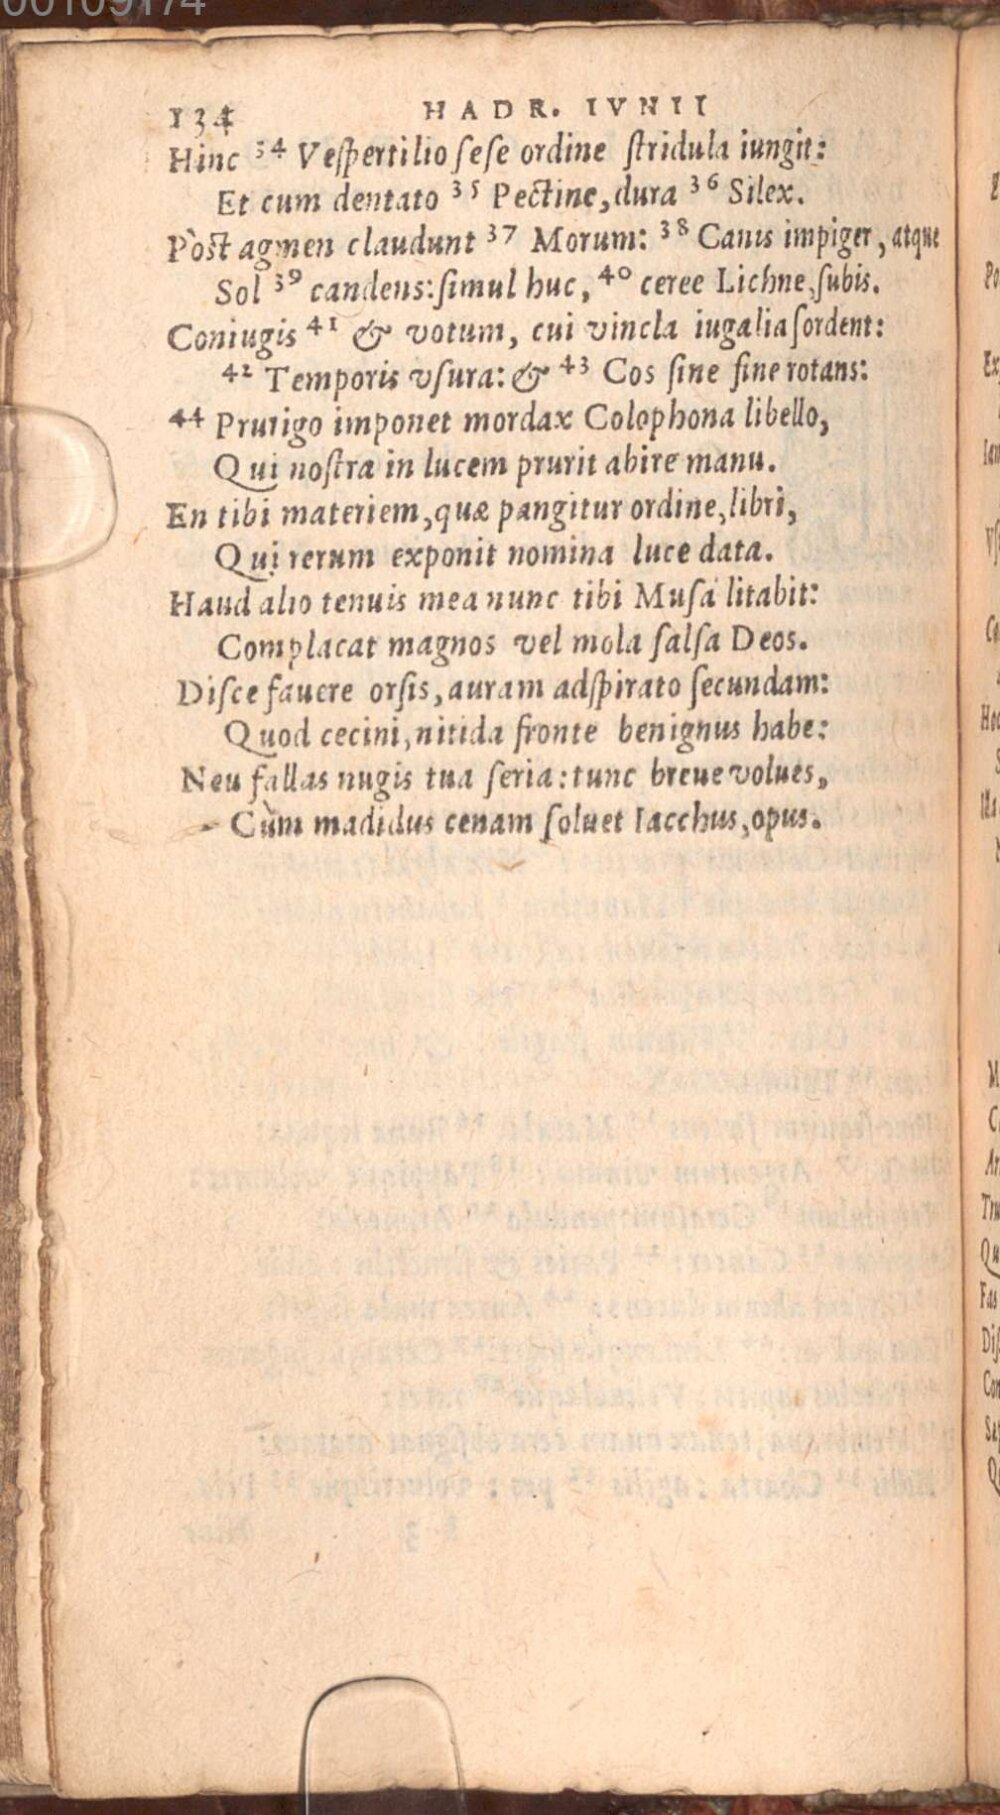 00109174
134 HADR. IVNII
Hinc 34 Veſpertilio ſeſe ordine ſtridula iungit:
Et cum dentato 35 Pectine, dura 36 Silex.
Pòst agmen claudunt 37 Morum: 38 Canis impiger, atque
Sol 39 candens: ſimul huc, 40 ceree Lichne, ſubis.
Coniugis 41 & votum, cui vincla iugalia ſordent:
42 Temporis vſura: & 43 Cos ſine fine rotans:
44 Prurigo imponet mordax Colophona libello,
Qui noſtra in lucem prurit abire manu.
En tibi materiem, quæ pangitur ordine, libri,
Qui rerum exponit nomina luce data.
Haud alio tenuis mea nunc tibi Muſa litabit:
Complacat magnos vel mola ſalſa Deos.
Diſce fauere orſis, auram adſpirato ſecundam:
Quod cecini, nitida fronte benignus habe:
Neu fallas nugis tua ſeria: tunc breue volues,
Cùm madidus cenam ſoluet Iacchus, opus.